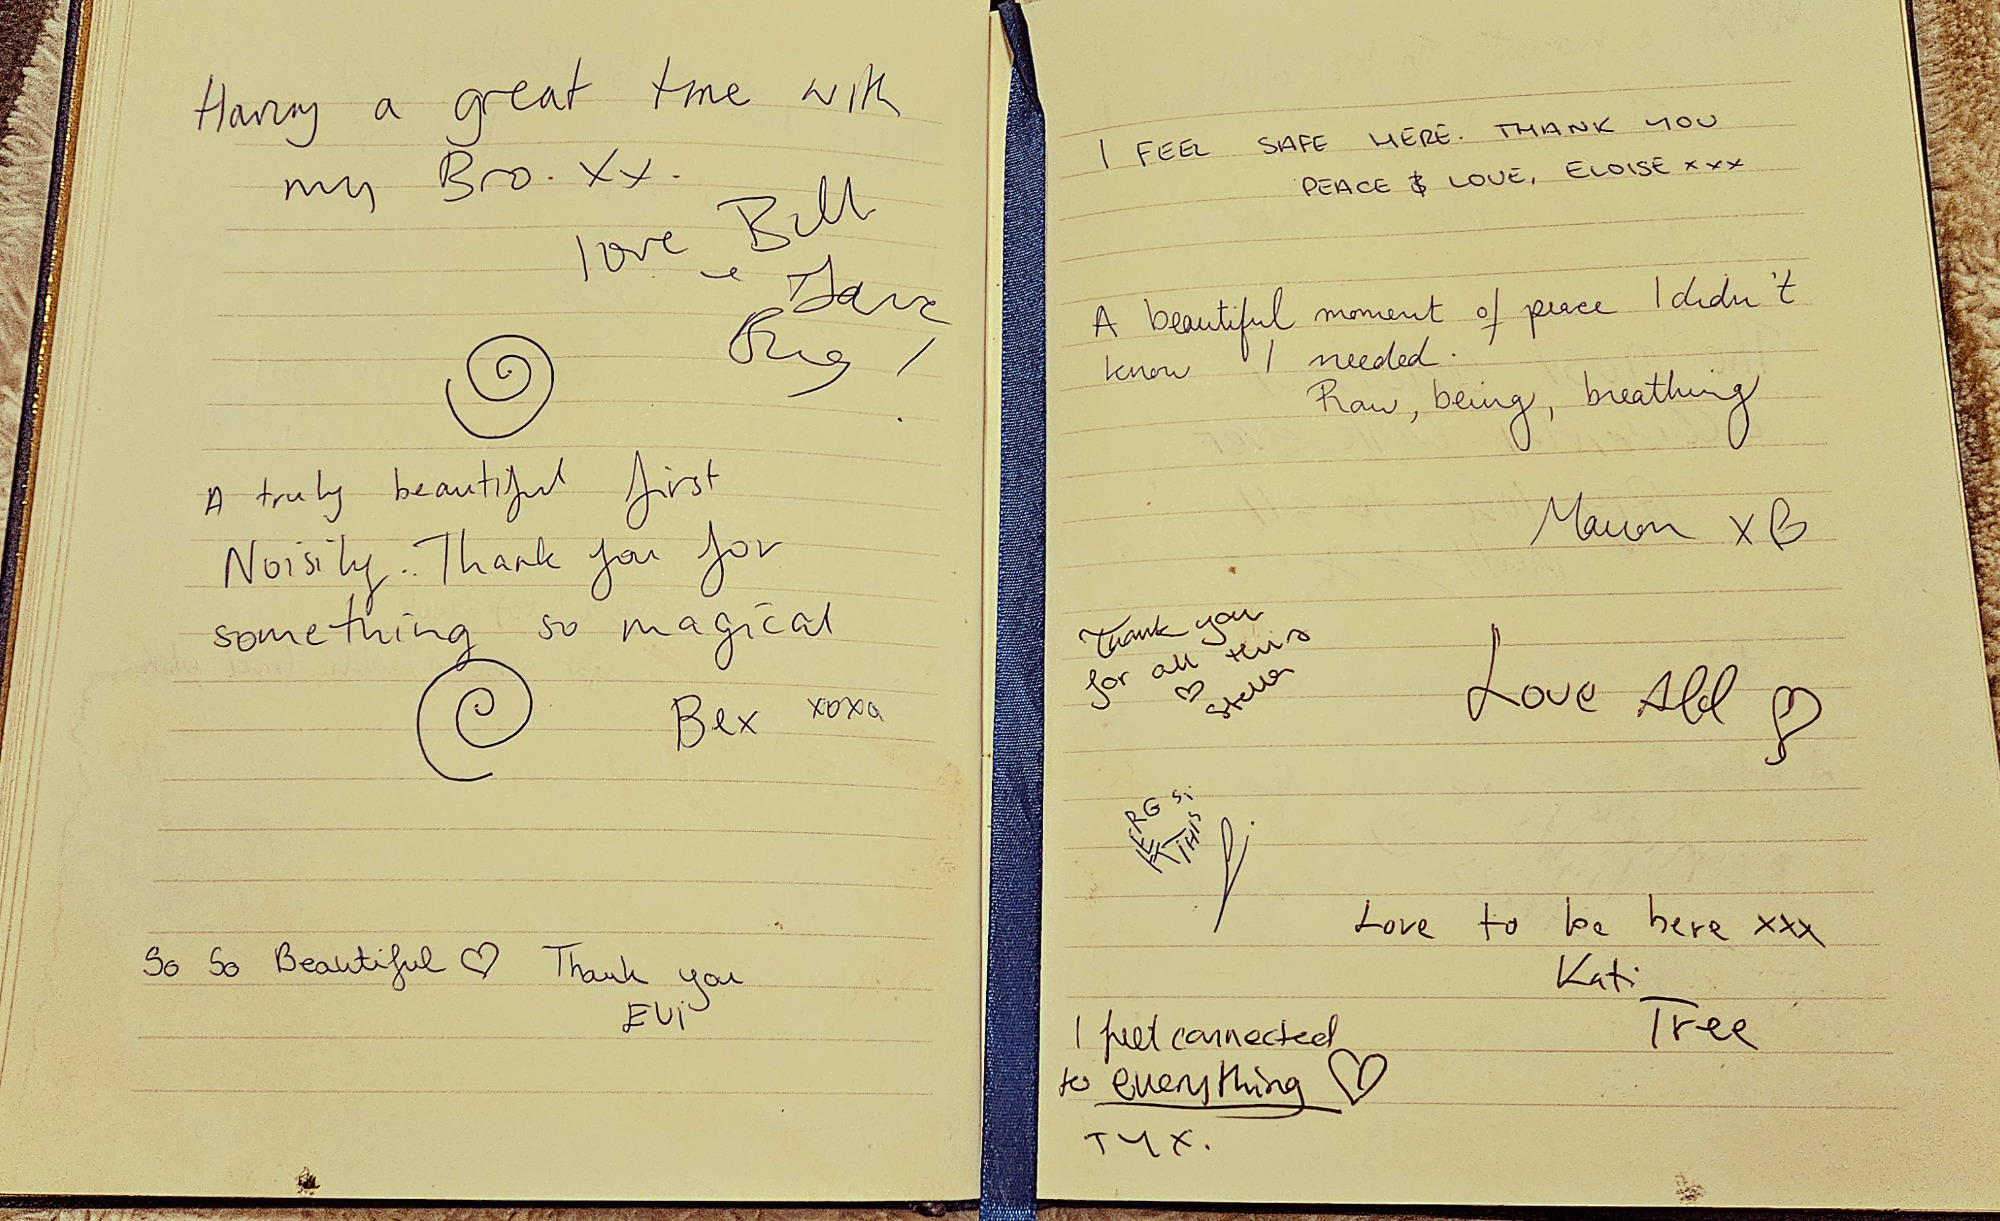 Having a great time with
my Bro. xx.
love Bill
A truly beautiful first
Noisily. Thank you for
something so magical
Bex xoxo
So So Beautiful ♡ Thank you
Evi
I FEEL SAFE HERE. THANK YOU
PEACE & LOVE, ELOISE xxx
A beautiful moment of peace I didn't
know I needed.
Raw, being, breathing
x
Thank you
for all this
♡ Stella
Love
THIS
Love to be here xxx
Kati
Tree
I feel connected
to everything ♡
TYX.